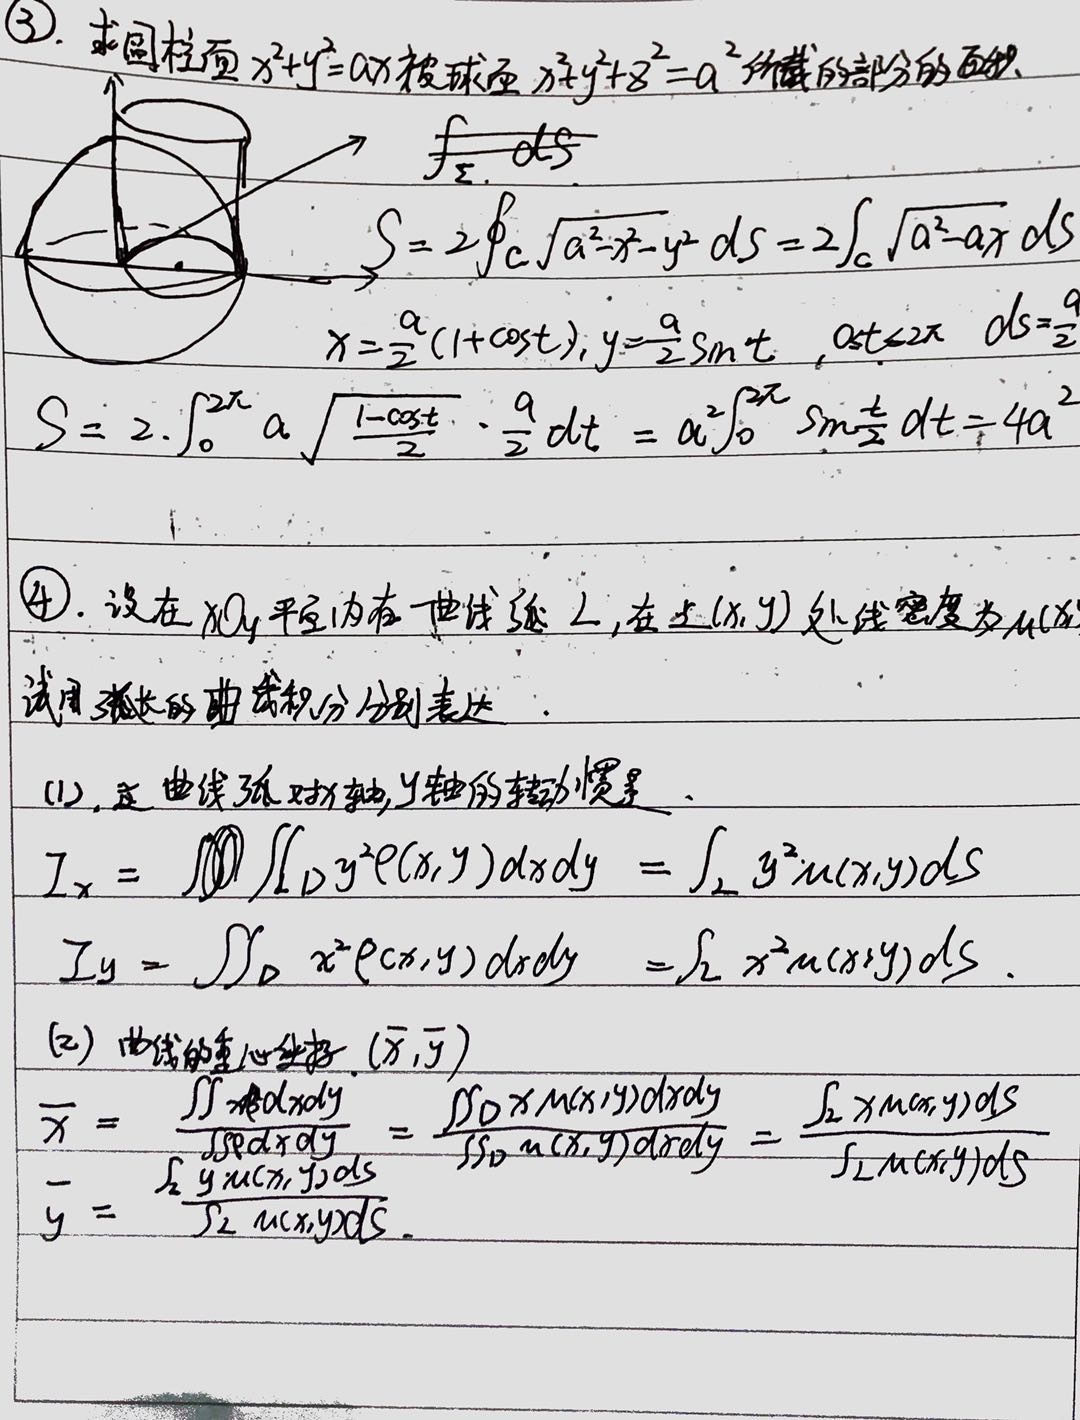 ③. 求圆柱面 x²+y²=ax 被球面 x²+y²+z²=a² 所截的部分的面积.
∫_Σ dS
S = 2∮_C √(a²-x²-y²) ds = 2∫_C √(a²-ax) ds
x = a/2 (1+cost), y = a/2 sint , 0≤t≤2π ds = a/2
S = 2·∫₀^{2π} a √((1-cost)/2) · a/2 dt = a²∫₀^{2π} sin t/2 dt = 4a²
④. 设在 xOy 平面内有一曲线弧 L, 在点(x,y) 处线密度为 μ(x,y
试用弧长的曲线积分分别表达 .
(1). 这曲线弧对x轴,y轴的转动惯量 .
I_x = ∬_D y²ρ(x,y)dxdy = ∫_L y²μ(x,y)ds
I_y = ∬_D x²ρ(x,y)dxdy = ∫_L x²μ(x,y)ds .
(2) 曲线的重心坐标 (x̄,ȳ)
x̄ = ∬xρdxdy / ∬ρdxdy = ∬_D xμ(x,y)dxdy / ∬_D μ(x,y)dxdy = ∫_L xμ(x,y)ds / ∫_L μ(x,y)ds
ȳ = ∫_L yμ(x,y)ds / ∫_L μ(x,y)ds .